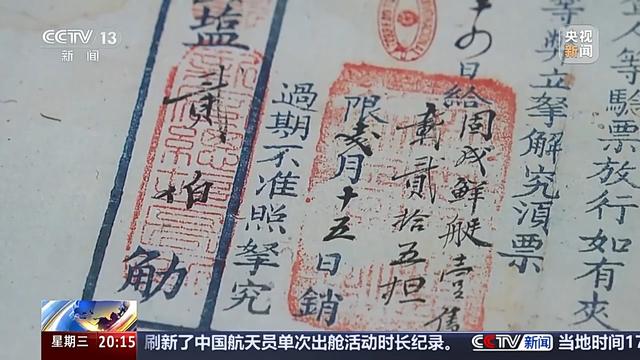 CCTV 13
新闻
央视
新闻
人等驗票放行如有夾
等弊立拏解究湏票
日給
周成鮮艇壹
貳拾五担
限
月十五日銷
過期不准照拏究
貳佰
觔
星期三 20:15
刷新了中国航天员单次出舱活动时长纪录。
CCTV新闻
当地时间17